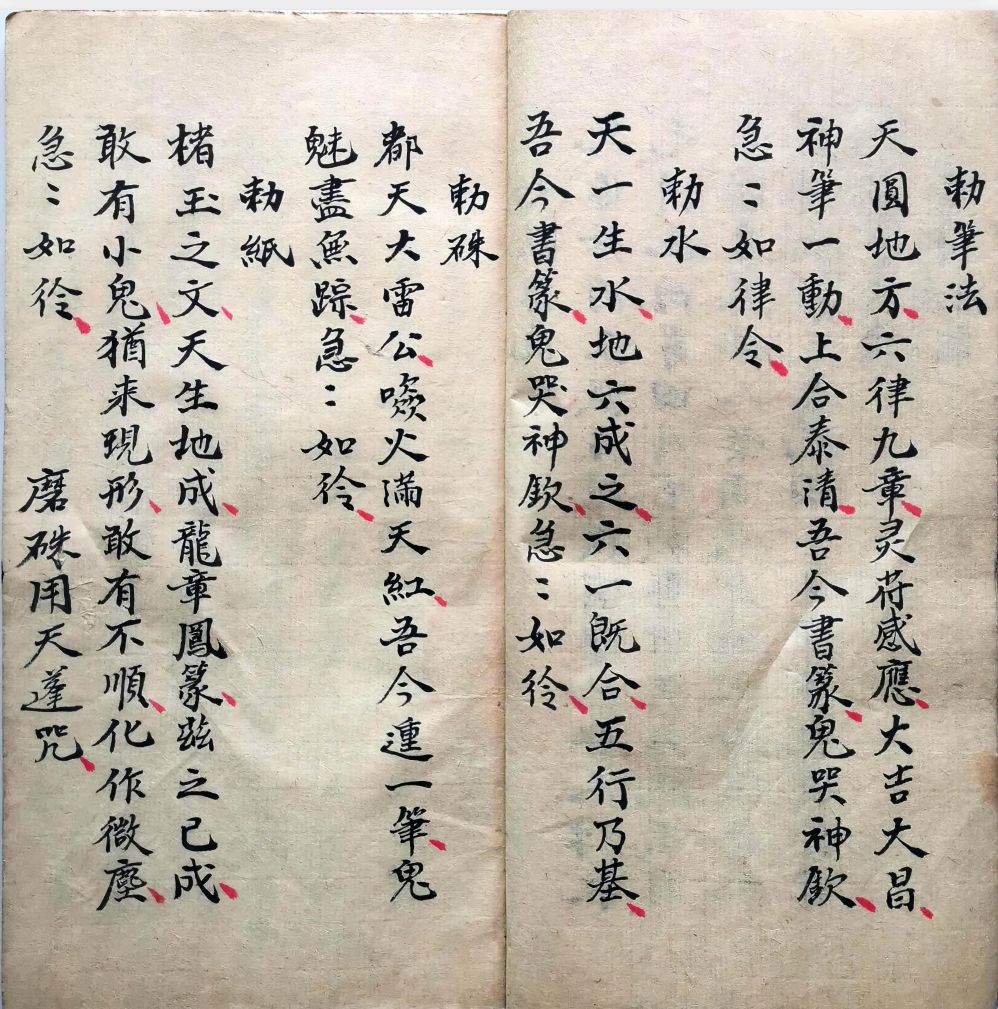 勅筆法
天圓地方六律九章灵苻感應大吉大昌
神筆一動上合泰清吾今書篆鬼哭神欽
急〻如律令
勅水
天一生水地六成之六一既合五行乃基
吾今書篆鬼哭神欽急〻如彾
勅硃
都天大雷公噏火滿天紅吾今運一筆鬼
魅盡無踪急〻如彾
勅紙
楮玉之文天生地成龍章鳳篆兹之已成
敢有小鬼猶来現形敢有不順化作微塵
急〻如彾 磨硃用天蓬咒